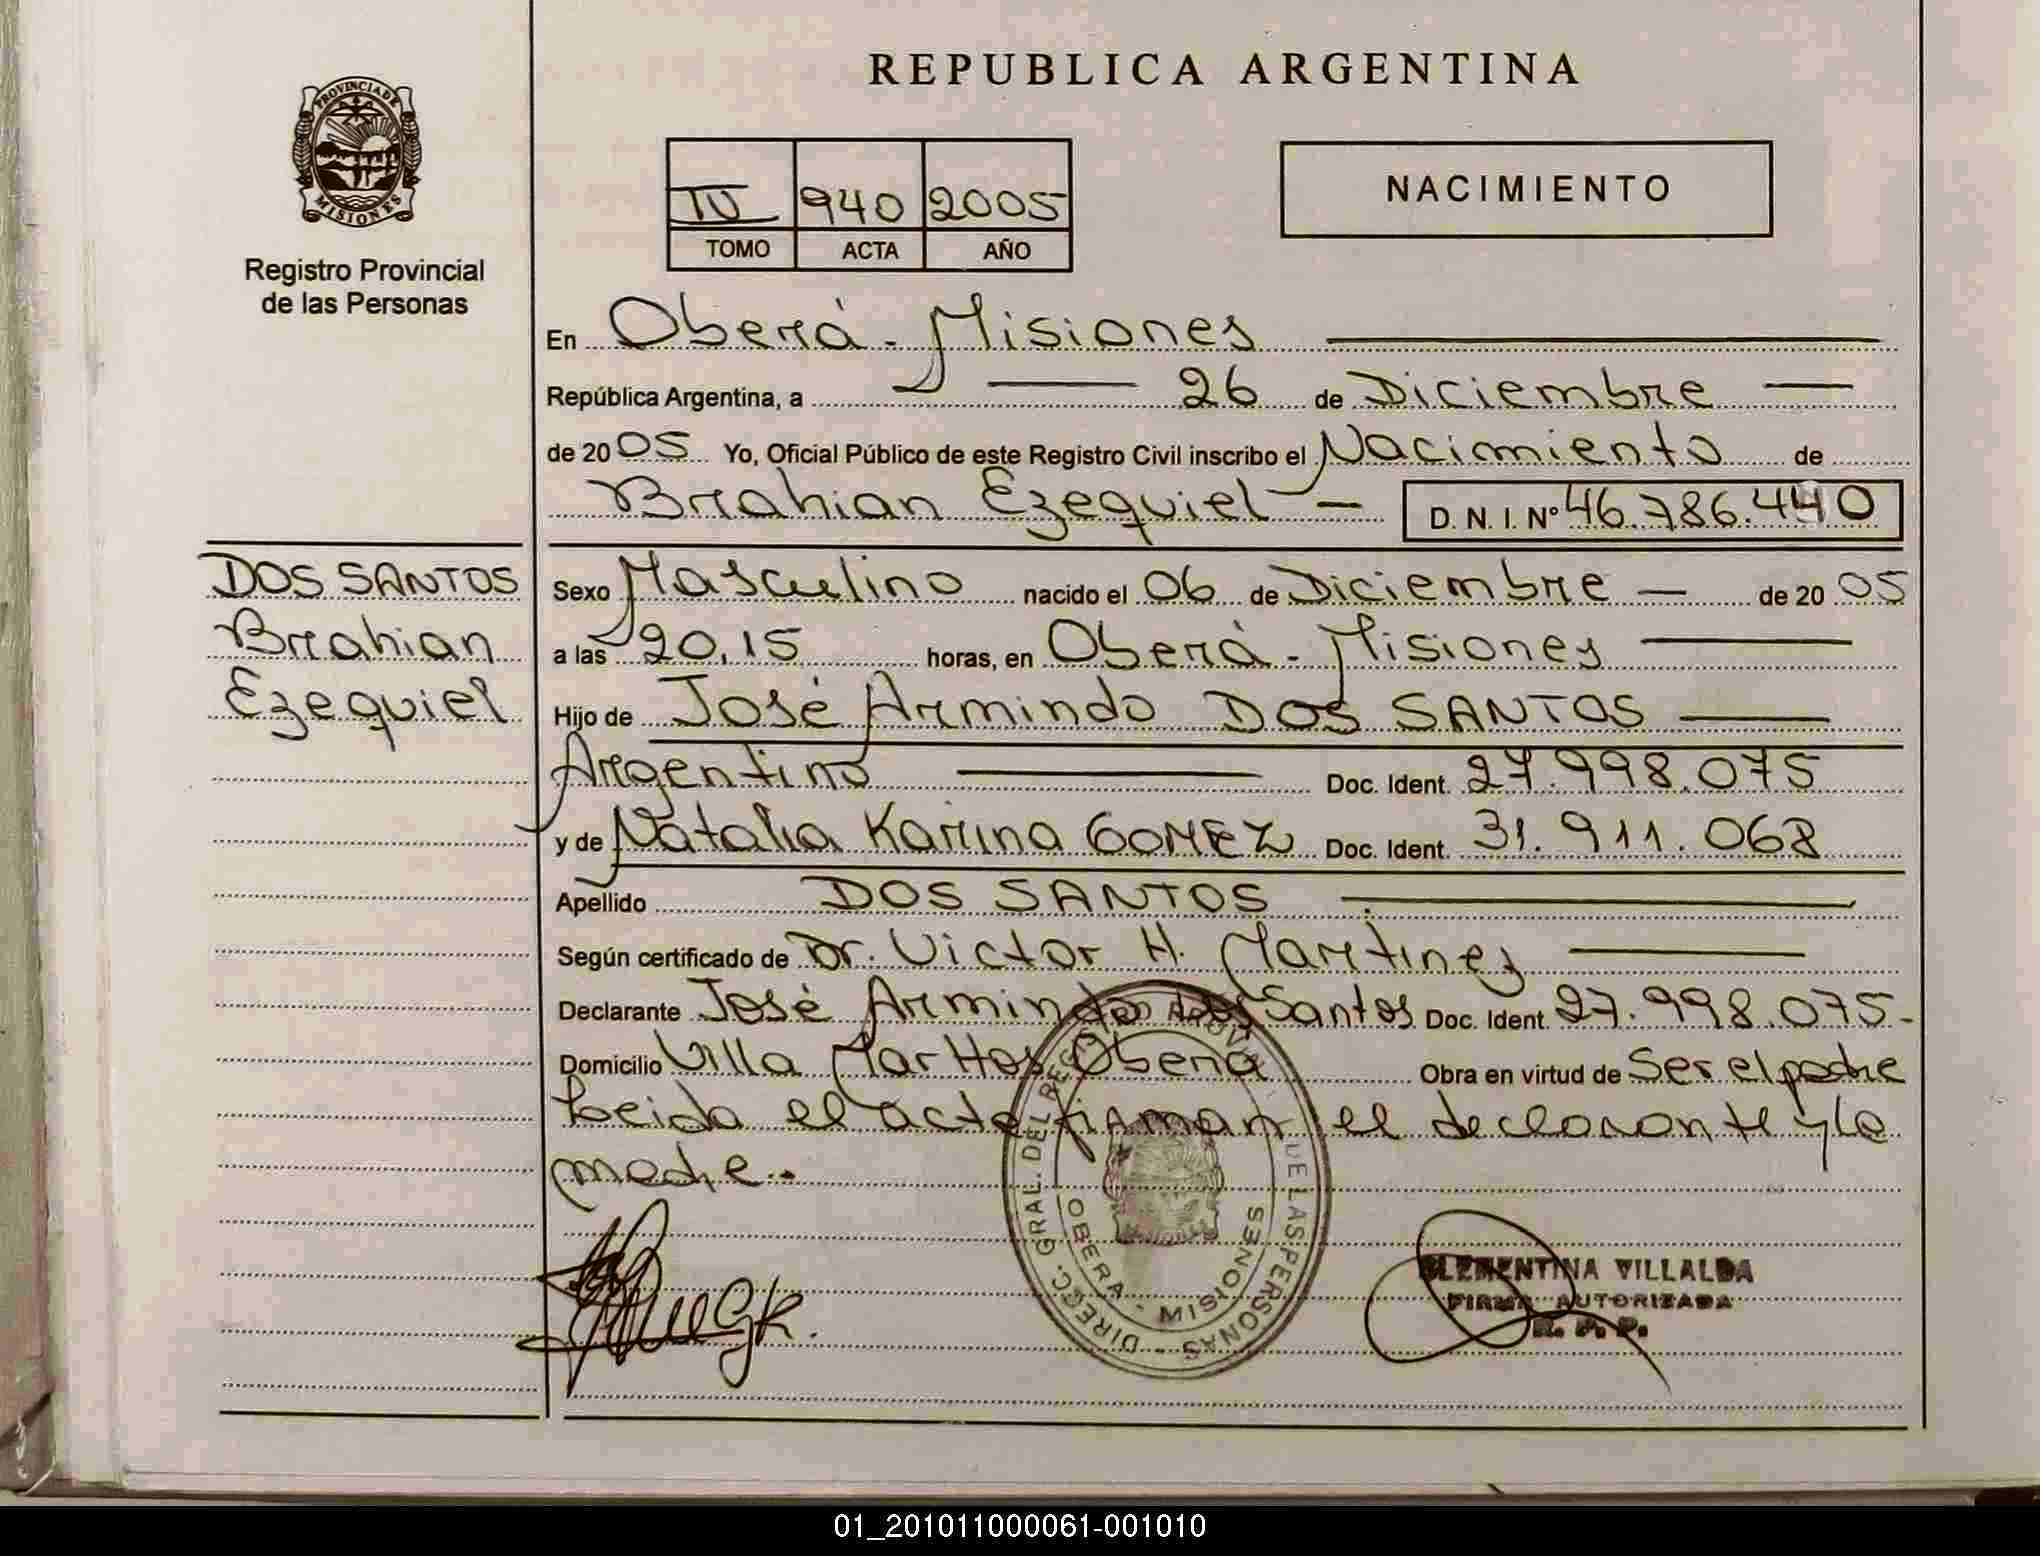 PROVINCIA DE
MISIONES
Registro Provincial
de las Personas
REPUBLICA ARGENTINA
IV 940 2005
TOMO ACTA AÑO
NACIMIENTO
En Oberá - Misiones
República Argentina, a 26 de Diciembre
de 2005 Yo, Oficial Público de este Registro Civil inscribo el Nacimiento de
Brahian Ezequiel D. N. I. Nº 46.786.440
DOS SANTOS
Brahian
Ezequiel
Sexo Masculino nacido el 06 de Diciembre de 2005
a las 20,15 horas, en Oberá - Misiones
Hijo de José Armindo DOS SANTOS
Argentino Doc. Ident. 27.998.075
y de Natalia Karina GOMEZ Doc. Ident. 31.911.068
Apellido DOS SANTOS
Según certificado de Dr. Victor H. Martinez
Declarante José Armindo Dos Santos Doc. Ident. 27.998.075.
Domicilio Villa Oberá Obra en virtud de Ser el padre
Leida el acta firman el declarante y la
madre.
DIREC. GRAL. DEL REG. PROVINC. DE LAS PERSONAS
OBERA - MISIONES
CLEMENTINA VILLALBA
FIRMA AUTORIZADA
R. P. P.
01_201011000061-001010